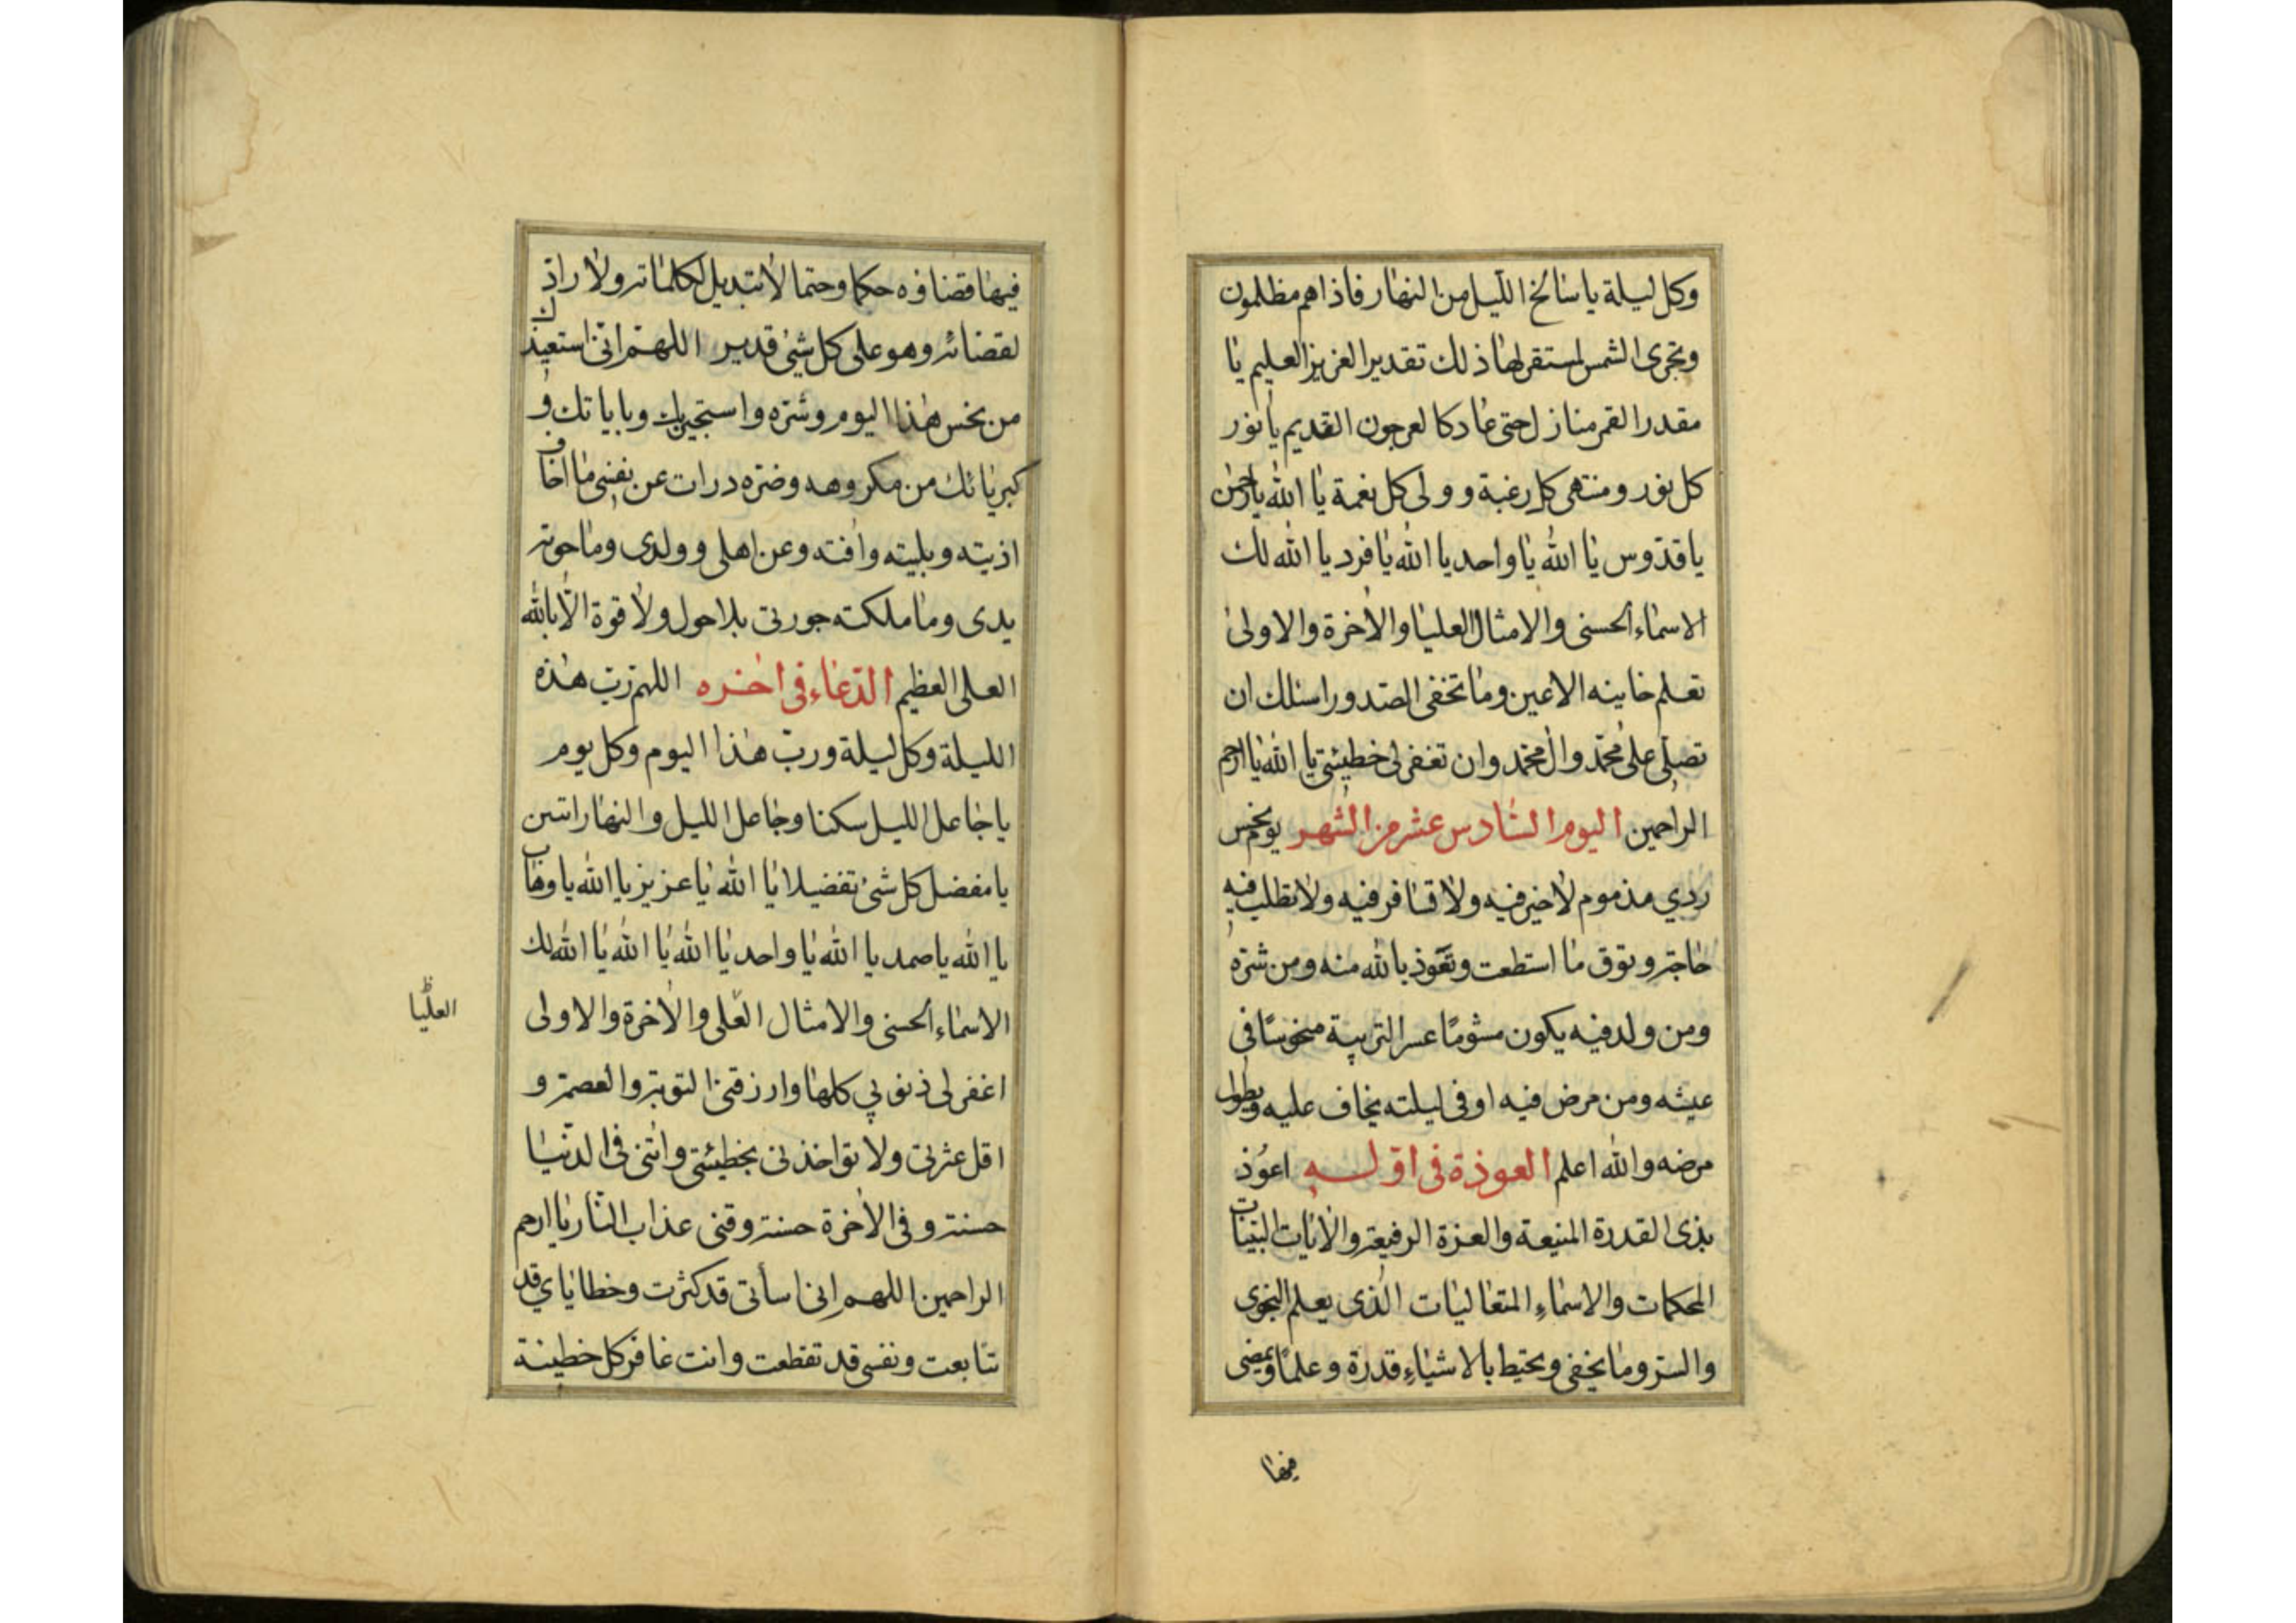 وكل ليلة يا سالخ الليل من النهار فاذا هم مظلمون
وتجرى الشمس لمستقر لها ذلك تقدير العزيز العليم يا
مقدر القمر منازل حتى عاد كالعرجون القديم يا نور
كل نور ومنتهى كل رغبة وولى كل نعمة يا الله يا رحمن
يا قدّوس يا الله يا واحد يا الله يا فرد يا الله لك
الاسماء الحسنى والامثال العليا والآخرة والاولى
تعلم خاينه الاعين وما تخفى الصدور اسئلك ان
تصلّى على محمّد وآل محمّد وان تغفر لى خطيئتى يا الله يا ارحم
الراحمين اليوم السّادس عشر من الشهر يوم نحس
ردي مذموم لا خير فيه ولا تسافر فيه ولا تطلب فيه
حاجة وتوق ما استطعت وتعّوذ بالله منه ومن شرّه
ومن ولد فيه يكون مشومًا عسر التربية منحوسًا فى
عيشه ومن مرض فيه او فى ليلته يخاف عليه ويطول
مرضه والله اعلم العوذة فى اوّله اعوُذ
بذى القدرة المنيعة والعزة الرفيعة والآيات البيّنات
المحكمات والاسماءِ المتعاليات الّذى يعلم النجوى
والسرّ وما يخفى ويحيط بالاشياءِ قدرة وعلمًا ويمضى
فيها
فيها قضاؤه حكما وحتما لا تبديل لكلماته ولا رادّ
لقضائه وهو على كل شئ قدير اللهمّ انّى استعيذ بك
من نحس هذا اليوم وشرّه واستجير بك وباياتك و
كبريائك من مكروهه وضرّه درات عن نفسى ما اخاف
اذيته وبليته وآفته وعن اهلى وولدى وما حوته
يدى وما ملكته حوزتى بلا حول ولا قوة الّا بالله
العلى العظيم الدّعاء فى آخره اللهم ربّ هذه
الليلة وكل ليلة وربّ هذا اليوم وكل يوم
يا جاعل الليل سكنا وجاعل الليل والنهار ايتين
يا مفضل كل شئ تفضيلا يا الله يا عزيز يا الله يا وهاب
يا الله يا صمد يا الله يا واحد يا الله يا الله يا الله لك
الاسماء الحسنى والامثال العّلى والآخرة والاولى
العليّا
اغفر لى ذنوبي كلها وارزقنى التوبة والعصمة و
اقل عثرتى ولا تواخذنى بخطيئتى وآتنى فى الدّنيا
حسنة وفى الآخرة حسنة وقنى عذاب النّار يا ارحم
الراحمين اللهم انى اسأتى قد كثرت وخطاياي قد
تتابعت ونفسى قد تقطعت وانت غافر كل خطيئة